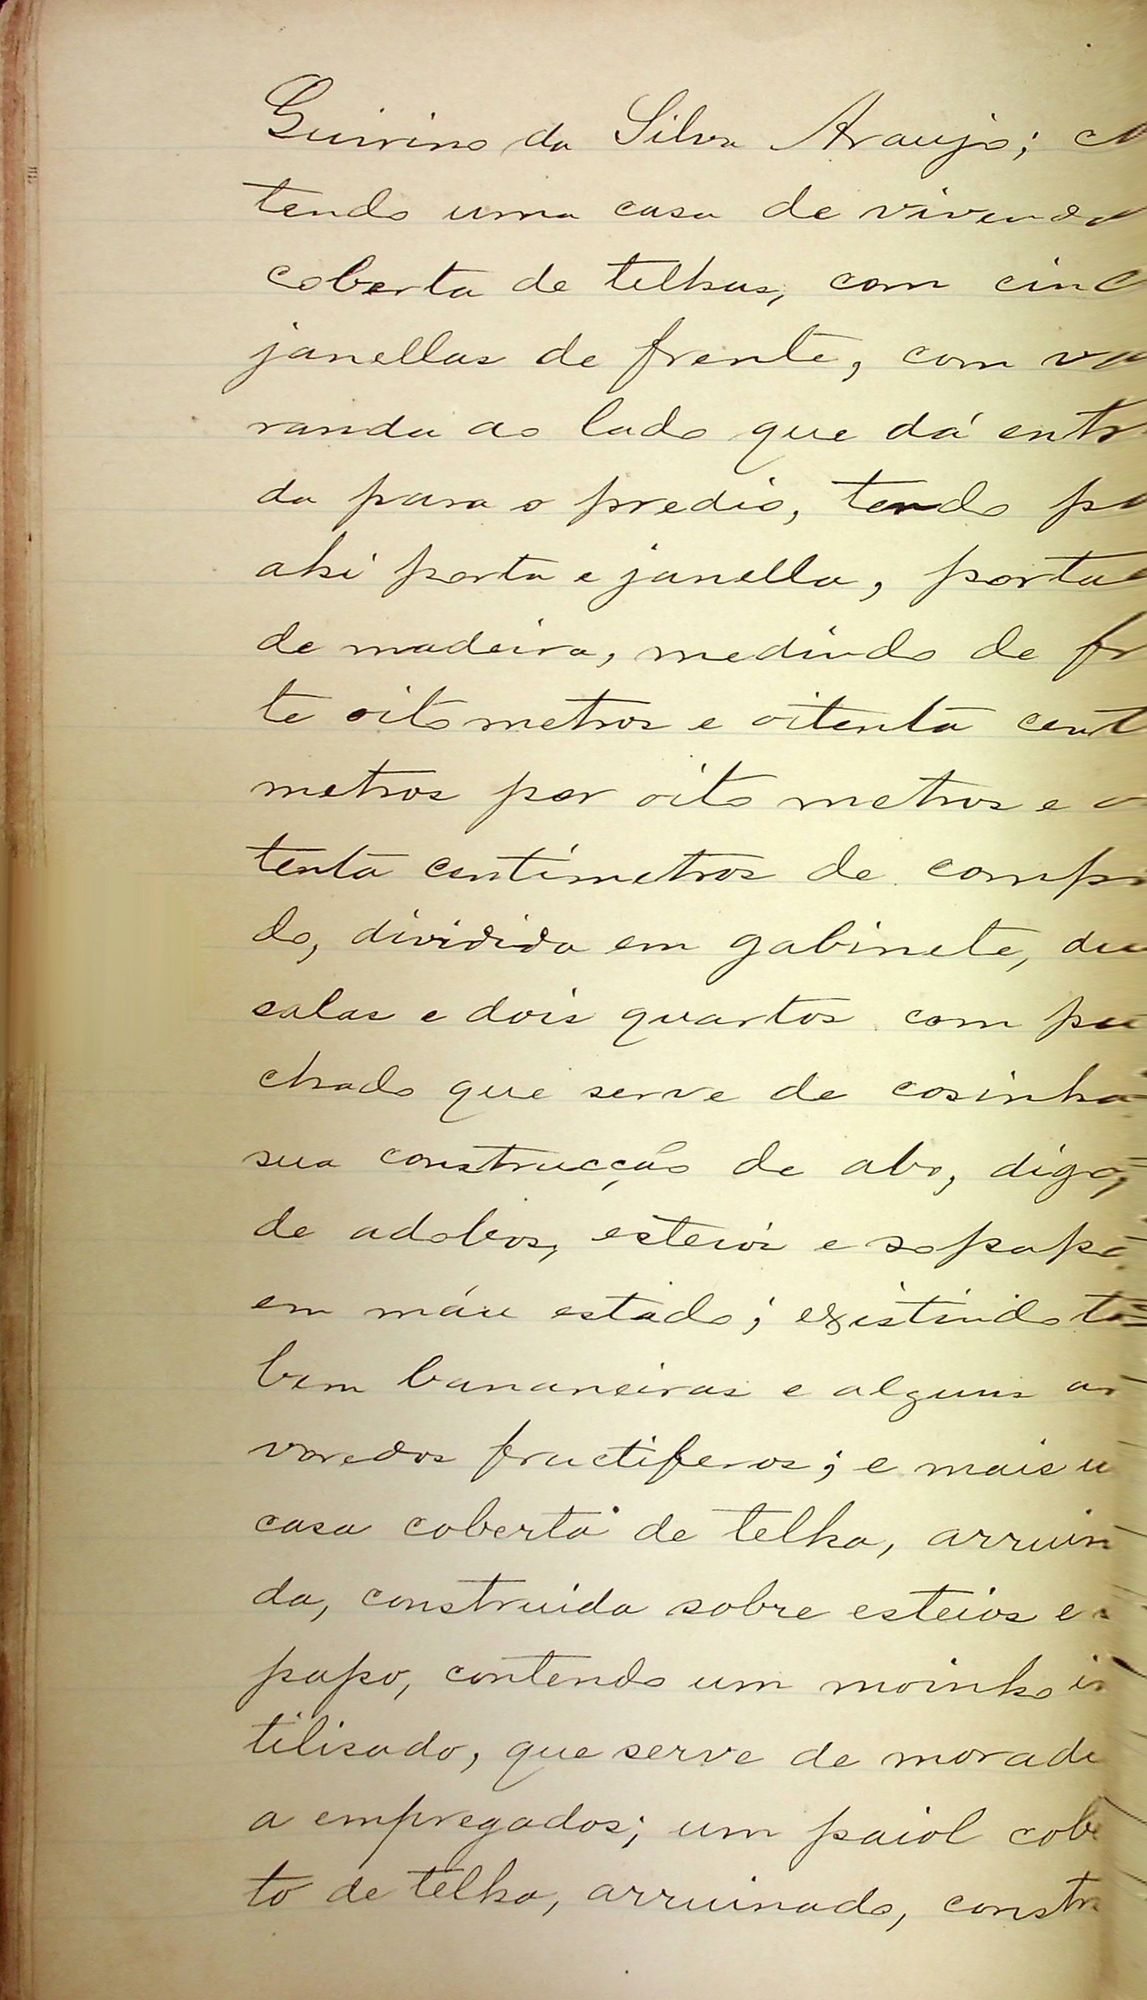 Guirino da Silva Araujo;
tendo uma casa de vivenda
coberta de telhas, com cinc
janellas de frente, com va
randa ao lado que dá entr
da para o predio, tendo po
ahi porta e janella, porta
de madeira, medindo de fr
te oito metros e oitenta cent
metros por oito metros e o
tenta centimetros de compr
do, dividida em gabinete, du
salas e dois quartos com pu
chado que serve de cosinha
sua construcção de abo, digo,
de adobos, esteios e sopapo
em máu estado; existindo ta
bem bananeiras e alguns ar
voredos fructiferos; e mais u
casa coberta de telha, arruin
da, construida sobre esteios e
papo, contendo um moinho in
tilisado, que serve de moradi
a empregados; um paiol cobe
to de telha, arruinado, constr